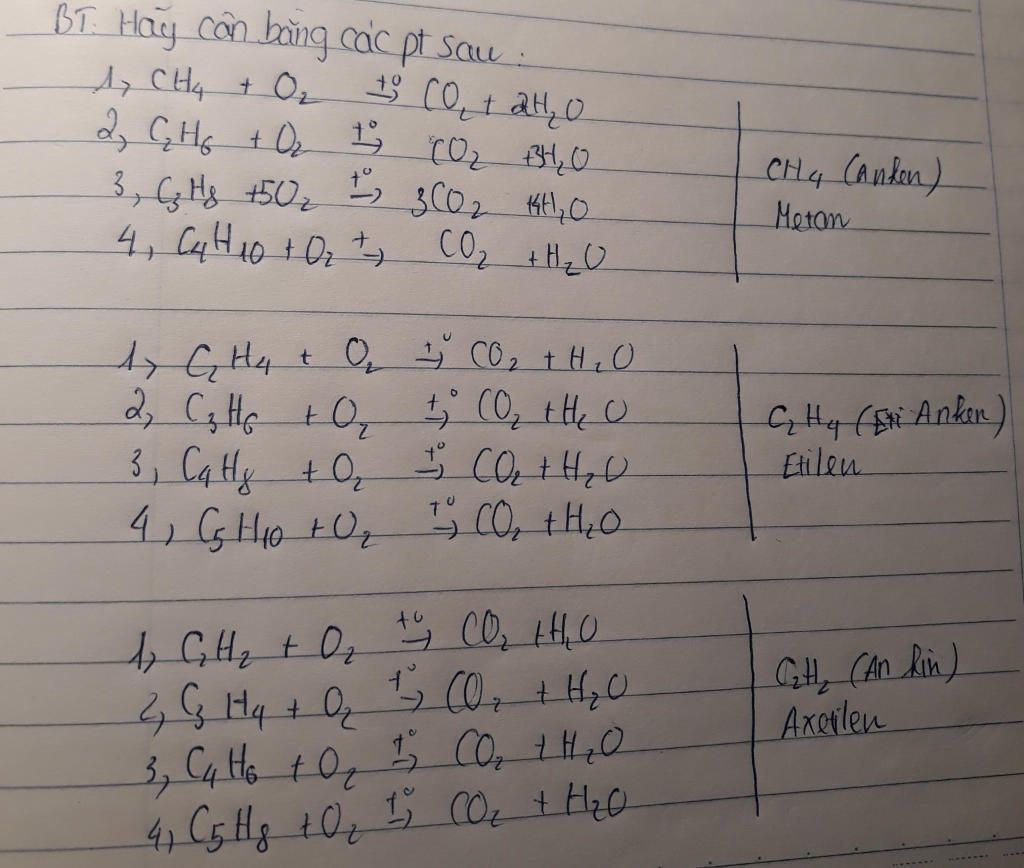 BT: Hãy cân bằng các pt sau:
1, CH4 + O2 t°→ CO2 + 2H2O
2, C2H6 + O2 t°→ CO2 +3H2O
3, C3H8 +5O2 t°→ 3CO2 +4H2O
4, C4H10 + O2 t→ CO2 + H2O
CH4 (Anken)
Metan
1, C2H4 + O2 t°→ CO2 + H2O
2, C3H6 + O2 t°→ CO2 + H2O
3, C4H8 + O2 t°→ CO2 + H2O
4, C5H10 + O2 t°→ CO2 + H2O
C2H4 (Anken)
Etilen
1, C2H2 + O2 t°→ CO2 + H2O
2, C3H4 + O2 t°→ CO2 + H2O
3, C4H6 + O2 t°→ CO2 + H2O
4, C5H8 + O2 t°→ CO2 + H2O
C2H2 (An kin)
Axetilen